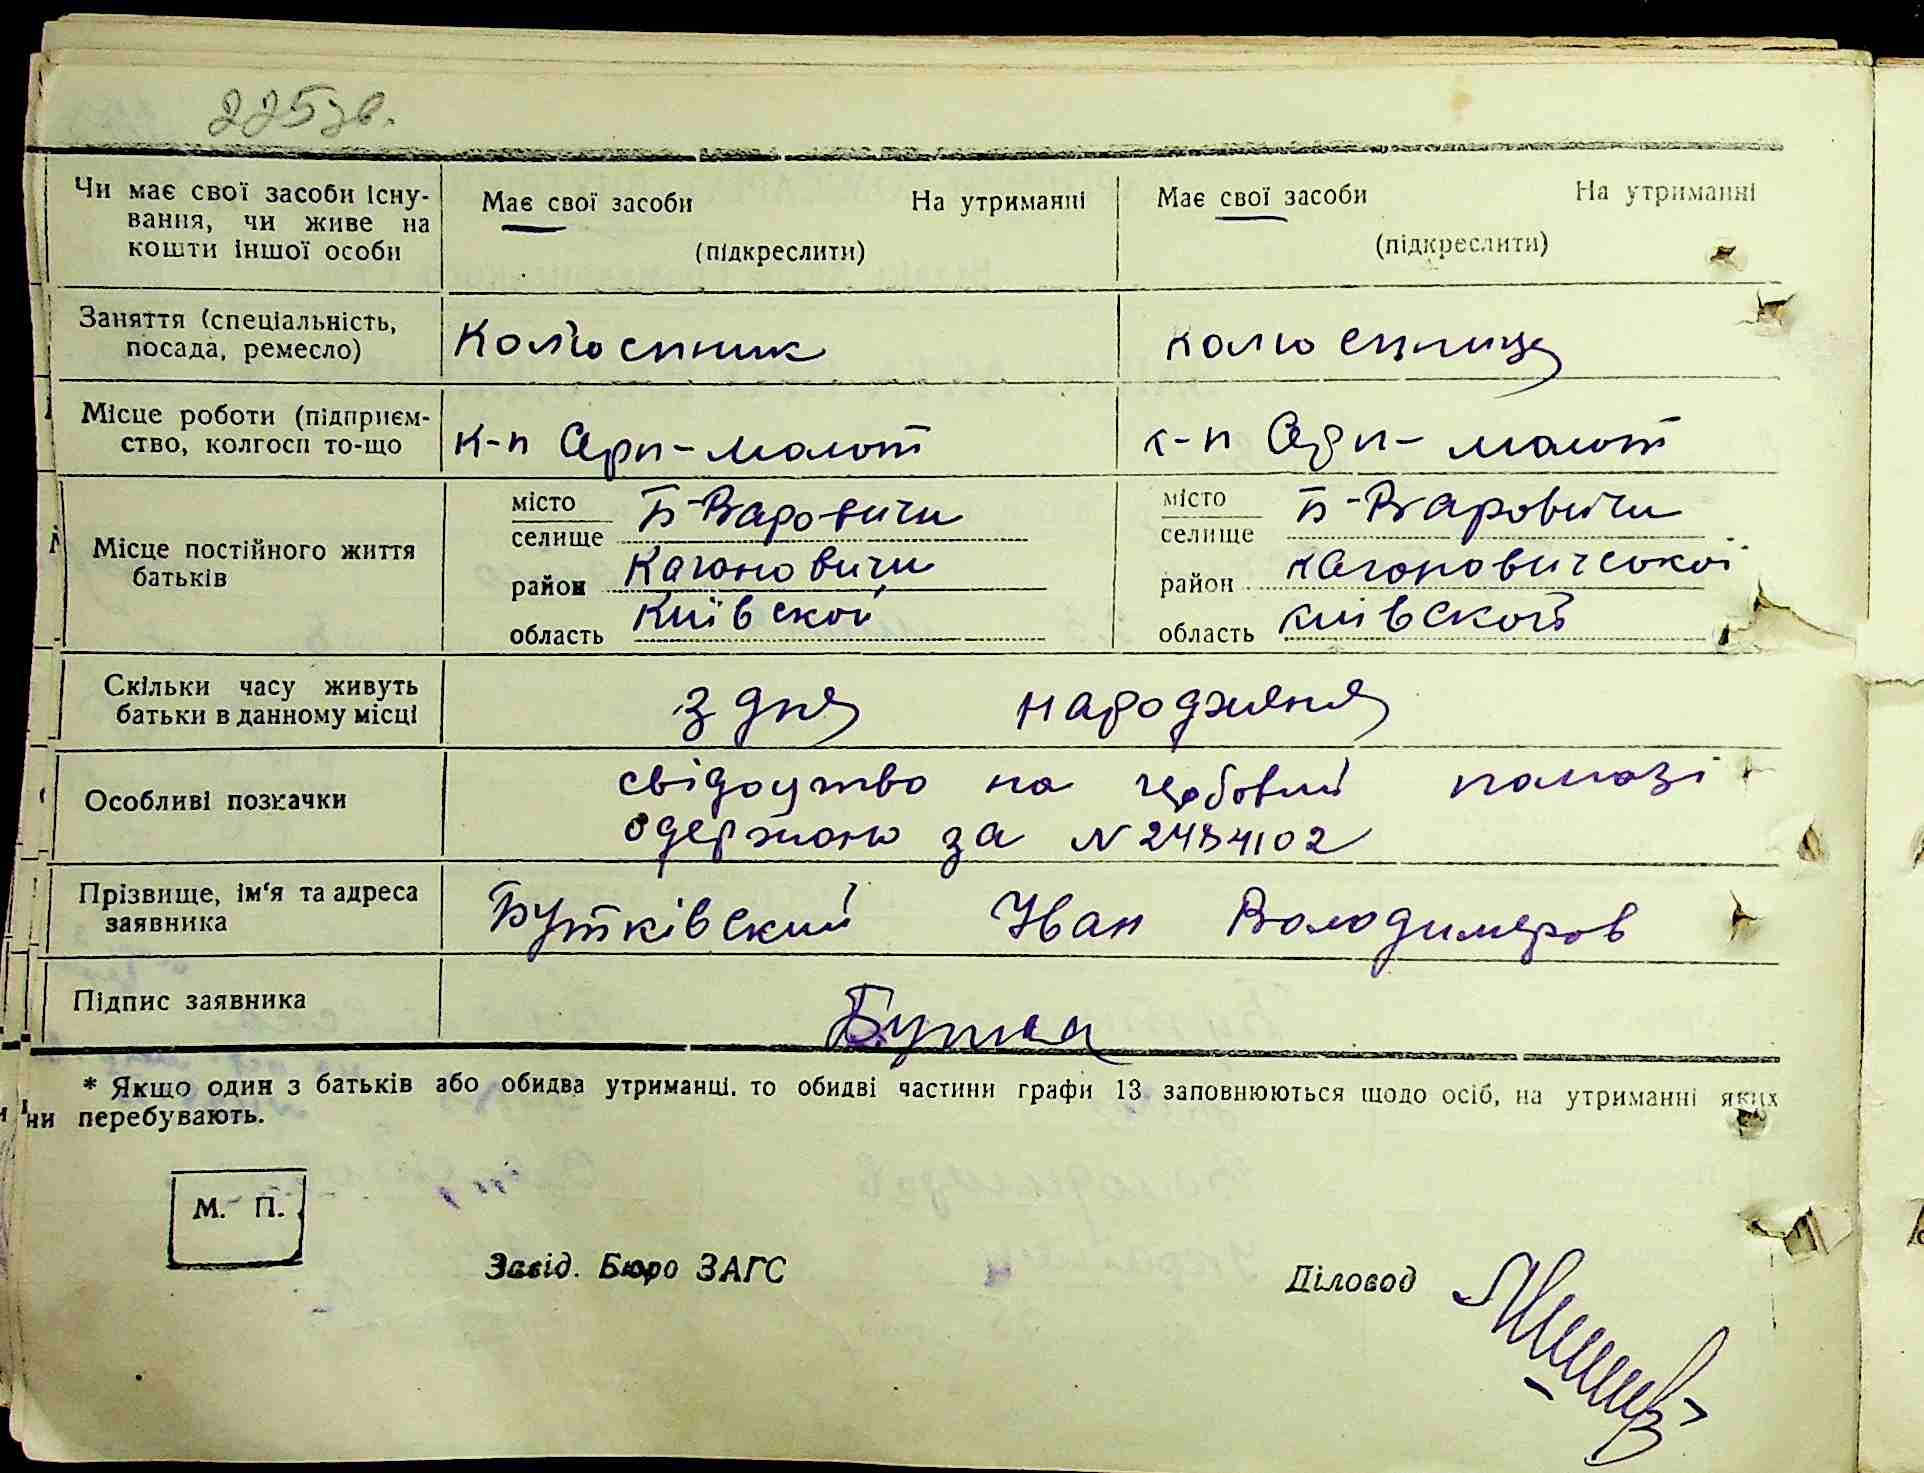 225зв.
Чи має свої засоби існу-
вання, чи живе на
кошти іншої особи
Має свої засоби На утриманні
(підкреслити)
Має свої засоби На утриманні
(підкреслити)
Заняття (спеціальність,
посада, ремесло)
Колгоспник
колгоспница
Місце роботи (підприєм-
ство, колгосп то-що
к-п Серп-молот
к-п Серп-молот
Місце постійного життя
батьків
місто
селище Б-Варовичи
район Кагановичи
область Київской
місто
селище Б-Варовичи
район Кагановичської
область київской
Скільки часу живуть
батьки в данному місці
з дня народженя
Особливі позначки
свідоцтво на
одержано за N
Прізвище, ім'я та адреса
заявника
Бутківский Иван Володимеров
Підпис заявника
* Якщо один з батьків або обидва утриманці, то обидві частини графи 13 заповнюються щодо осіб, на утриманні яких
ни перебувають.
М. П.
Завід. Бюро ЗАГС
Діловод